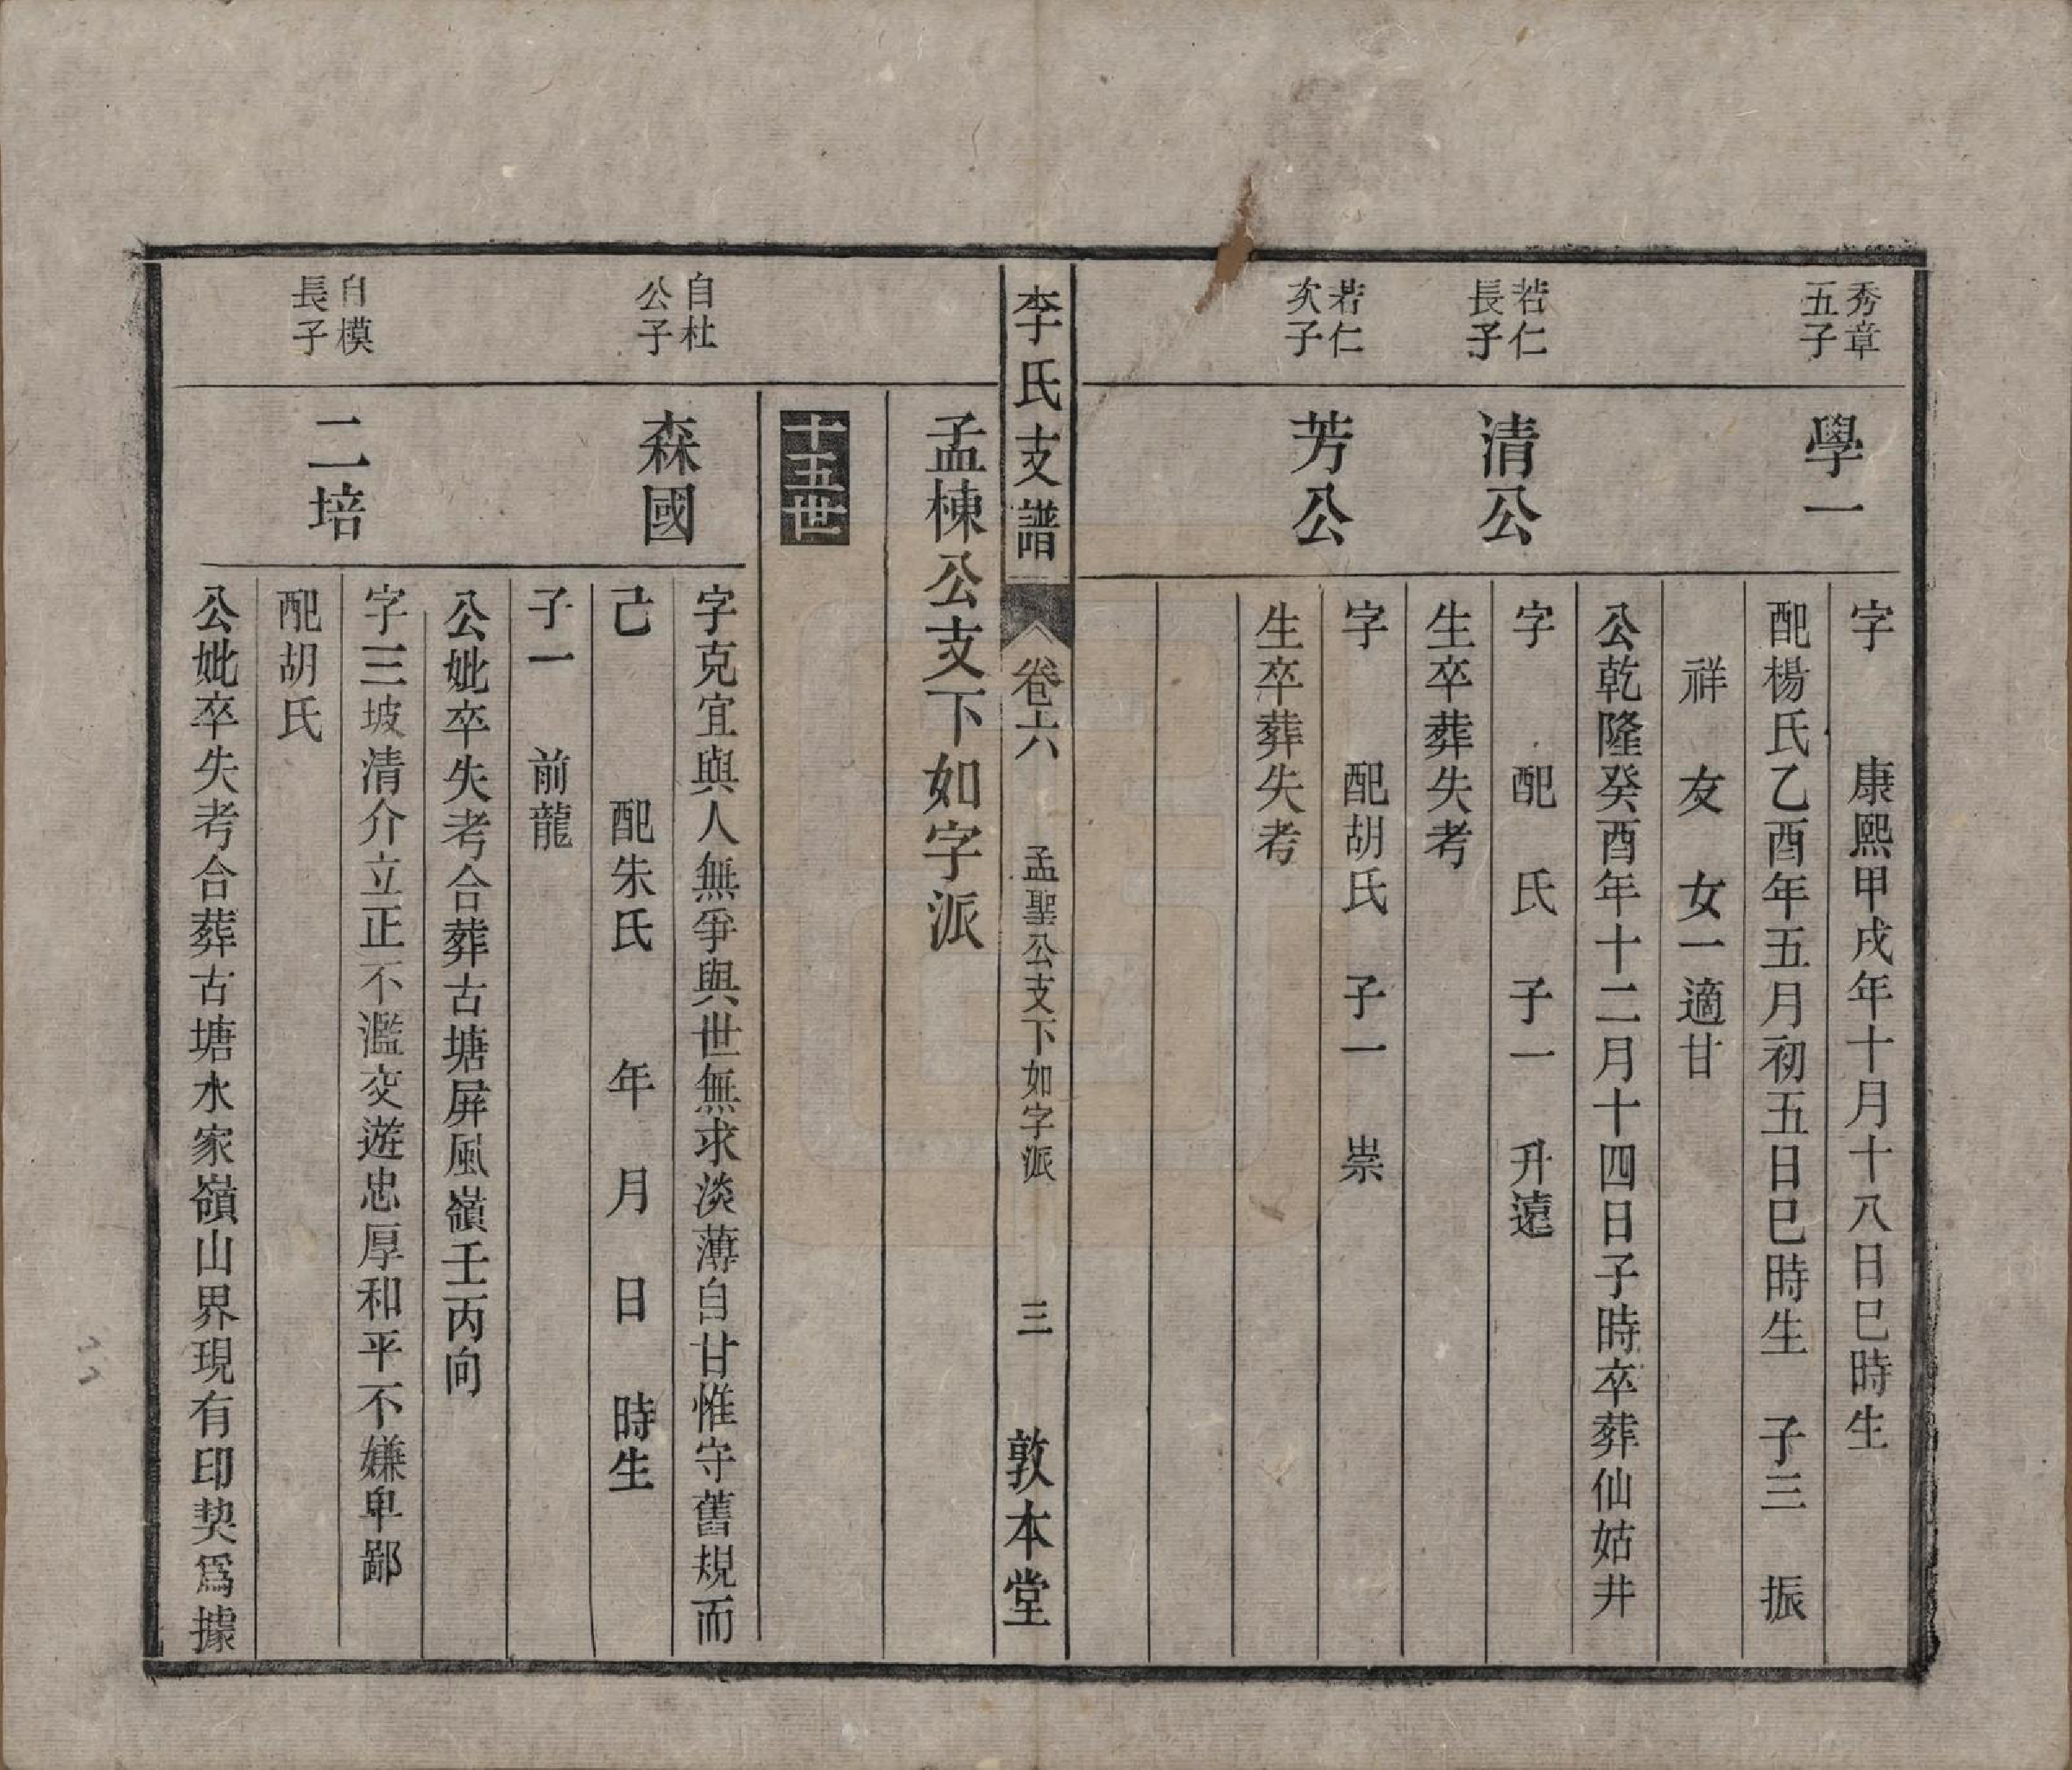 秀章
五子
學一
字　康熙甲戌年十月十八日巳時生
配楊氏乙酉年五月初五日巳時生　子三　振
祥　友　女一適甘
公乾隆癸酉年十二月十四日子時卒葬仙姑井
若仁
長子
清公
字　配　氏　子一　升遠
生卒葬失考
若仁
次子
芳公
字　配胡氏　子一　崇
生卒葬失考
李氏支譜　卷六　孟聖公支下如字派　三　敦本堂
孟棟公支下如字派
十五世
自杜
公子
森國
字克宜與人無爭與世無求淡薄自甘惟守舊規而
己　配朱氏　年　月　日　時生
子一　前龍
公妣卒失考合葬古塘屏風嶺壬丙向
自模
長子
二培
字三坡清介立正不濫交遊忠厚和平不嫌卑鄙
配胡氏
公妣卒失考合葬古塘水家嶺山界現有印契爲據